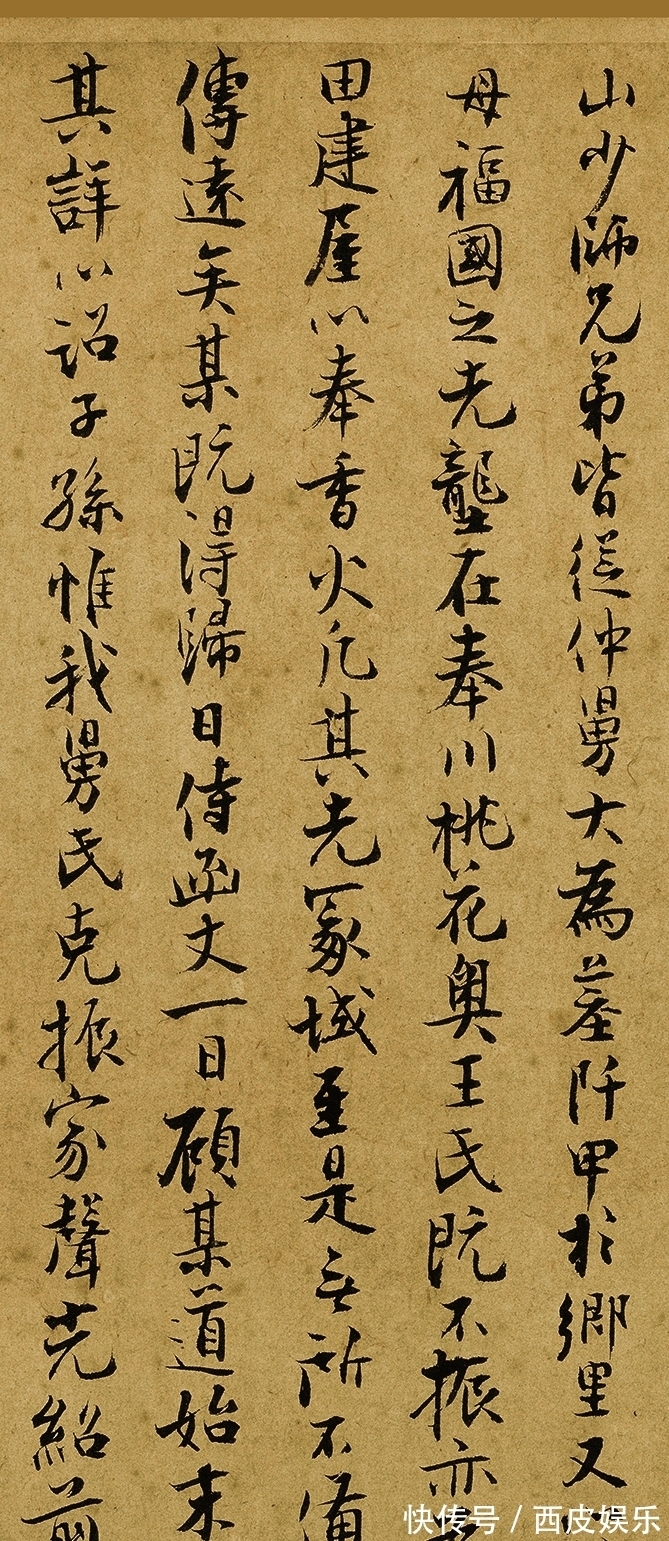 山少师兄弟皆从仲舅大為墓阡甲於鄉里又
母福國之先壟在奉川桃花奥王氏既不振亦
田建屋以奉香火凡其先冢域至是無所不備
傳遠矣某既得歸日侍函丈一日顧某道始末
其詳以詔子孫惟我舅氏克振家聲光紹前
快传号 / 西皮娱乐